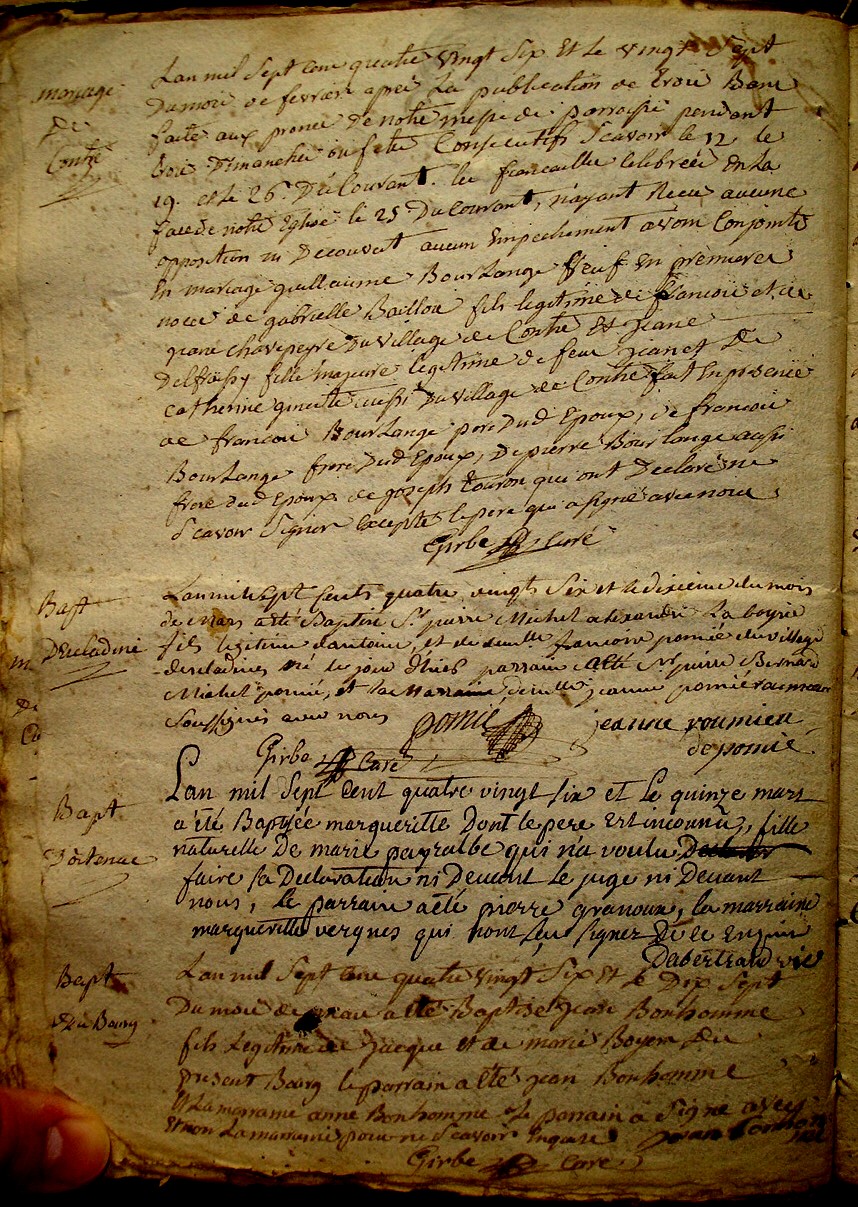 mariage
de
Contre
Lan mil Sept cen quatre Vingt Six Et le Vingt Sept
Dumois de fevrier apres La publication de trois Banc
faite aux prones De notre messe de parroisse pendant
trois Dimanches ou fetes Consecutifs Scavoir le 12 le
19. et le 26. Du Courant. les fiancailles celebrées En La
face de notre Eglise le 25 Du Courant, n'ayant Recu aucune
opposition ni Decouvert aucun Empechement avons Conjoints
En mariage guillaume BourLange Veuf En premieres
noces de gabrielle Baillou fils legitime de francois et de
jeane chavepeyre Du Village de Contre Et jeane
fille majeure legitime de feu jean et De
Catherine aussi Du Village de Contre fait En presence
de francois BourLange pere Dud Epoux, de francois
BourLange frere Dud Epoux, De pierre BourLange aussi
frere dud Epoux de joseph touron qui ont Declaré ne
Scavoir Signer Excepte le pere qui a signé avec nous
Girbe Curé
Bapt
Lan mil Sept Cents quatre vingts Six et le dixieme du mois
de Mars a eté Baptise Sr. pierre Michel alexandre La boyrie
fils legitime dantoine, et de demlle. francoise pomié du village
né le jour d'hier parrain a eté Sr pierre Bernard
Michel pomié, et la Marraine demlle jeanne pomié
Soussignés avec nous pomié jeanne roumieu
de pomié
Girbe Curé
Bapt
Lan mil Sept Cent quatre vingt Six et Le quinze mars
a été Baptisée marguerite Dont le pere Est inconnu, fille
naturelle De marie peyralbe qui n'a voulu
faire sa Declaration ni Devant Le juge ni Devant
nous, Le parrain a eté pierre granoux, la marraine
marguerite vergnes qui nont Seu signer De ce Enquis
Dabertrand vic
Bapt
du Bourg
Lan mil Sept cen quatre Vingt Six Et le Dix Sept
Du mois de mars a eté Baptise jean Bonhomme
fils Legitime de jacque et de marie Boyer Du
present Bourg le parrain a eté jean Bonhomme
Et La marraine anne Bonhomme le parrain a Signé avec
Et non La marraine pour ne Scavoir Enquise
Girbe Curé